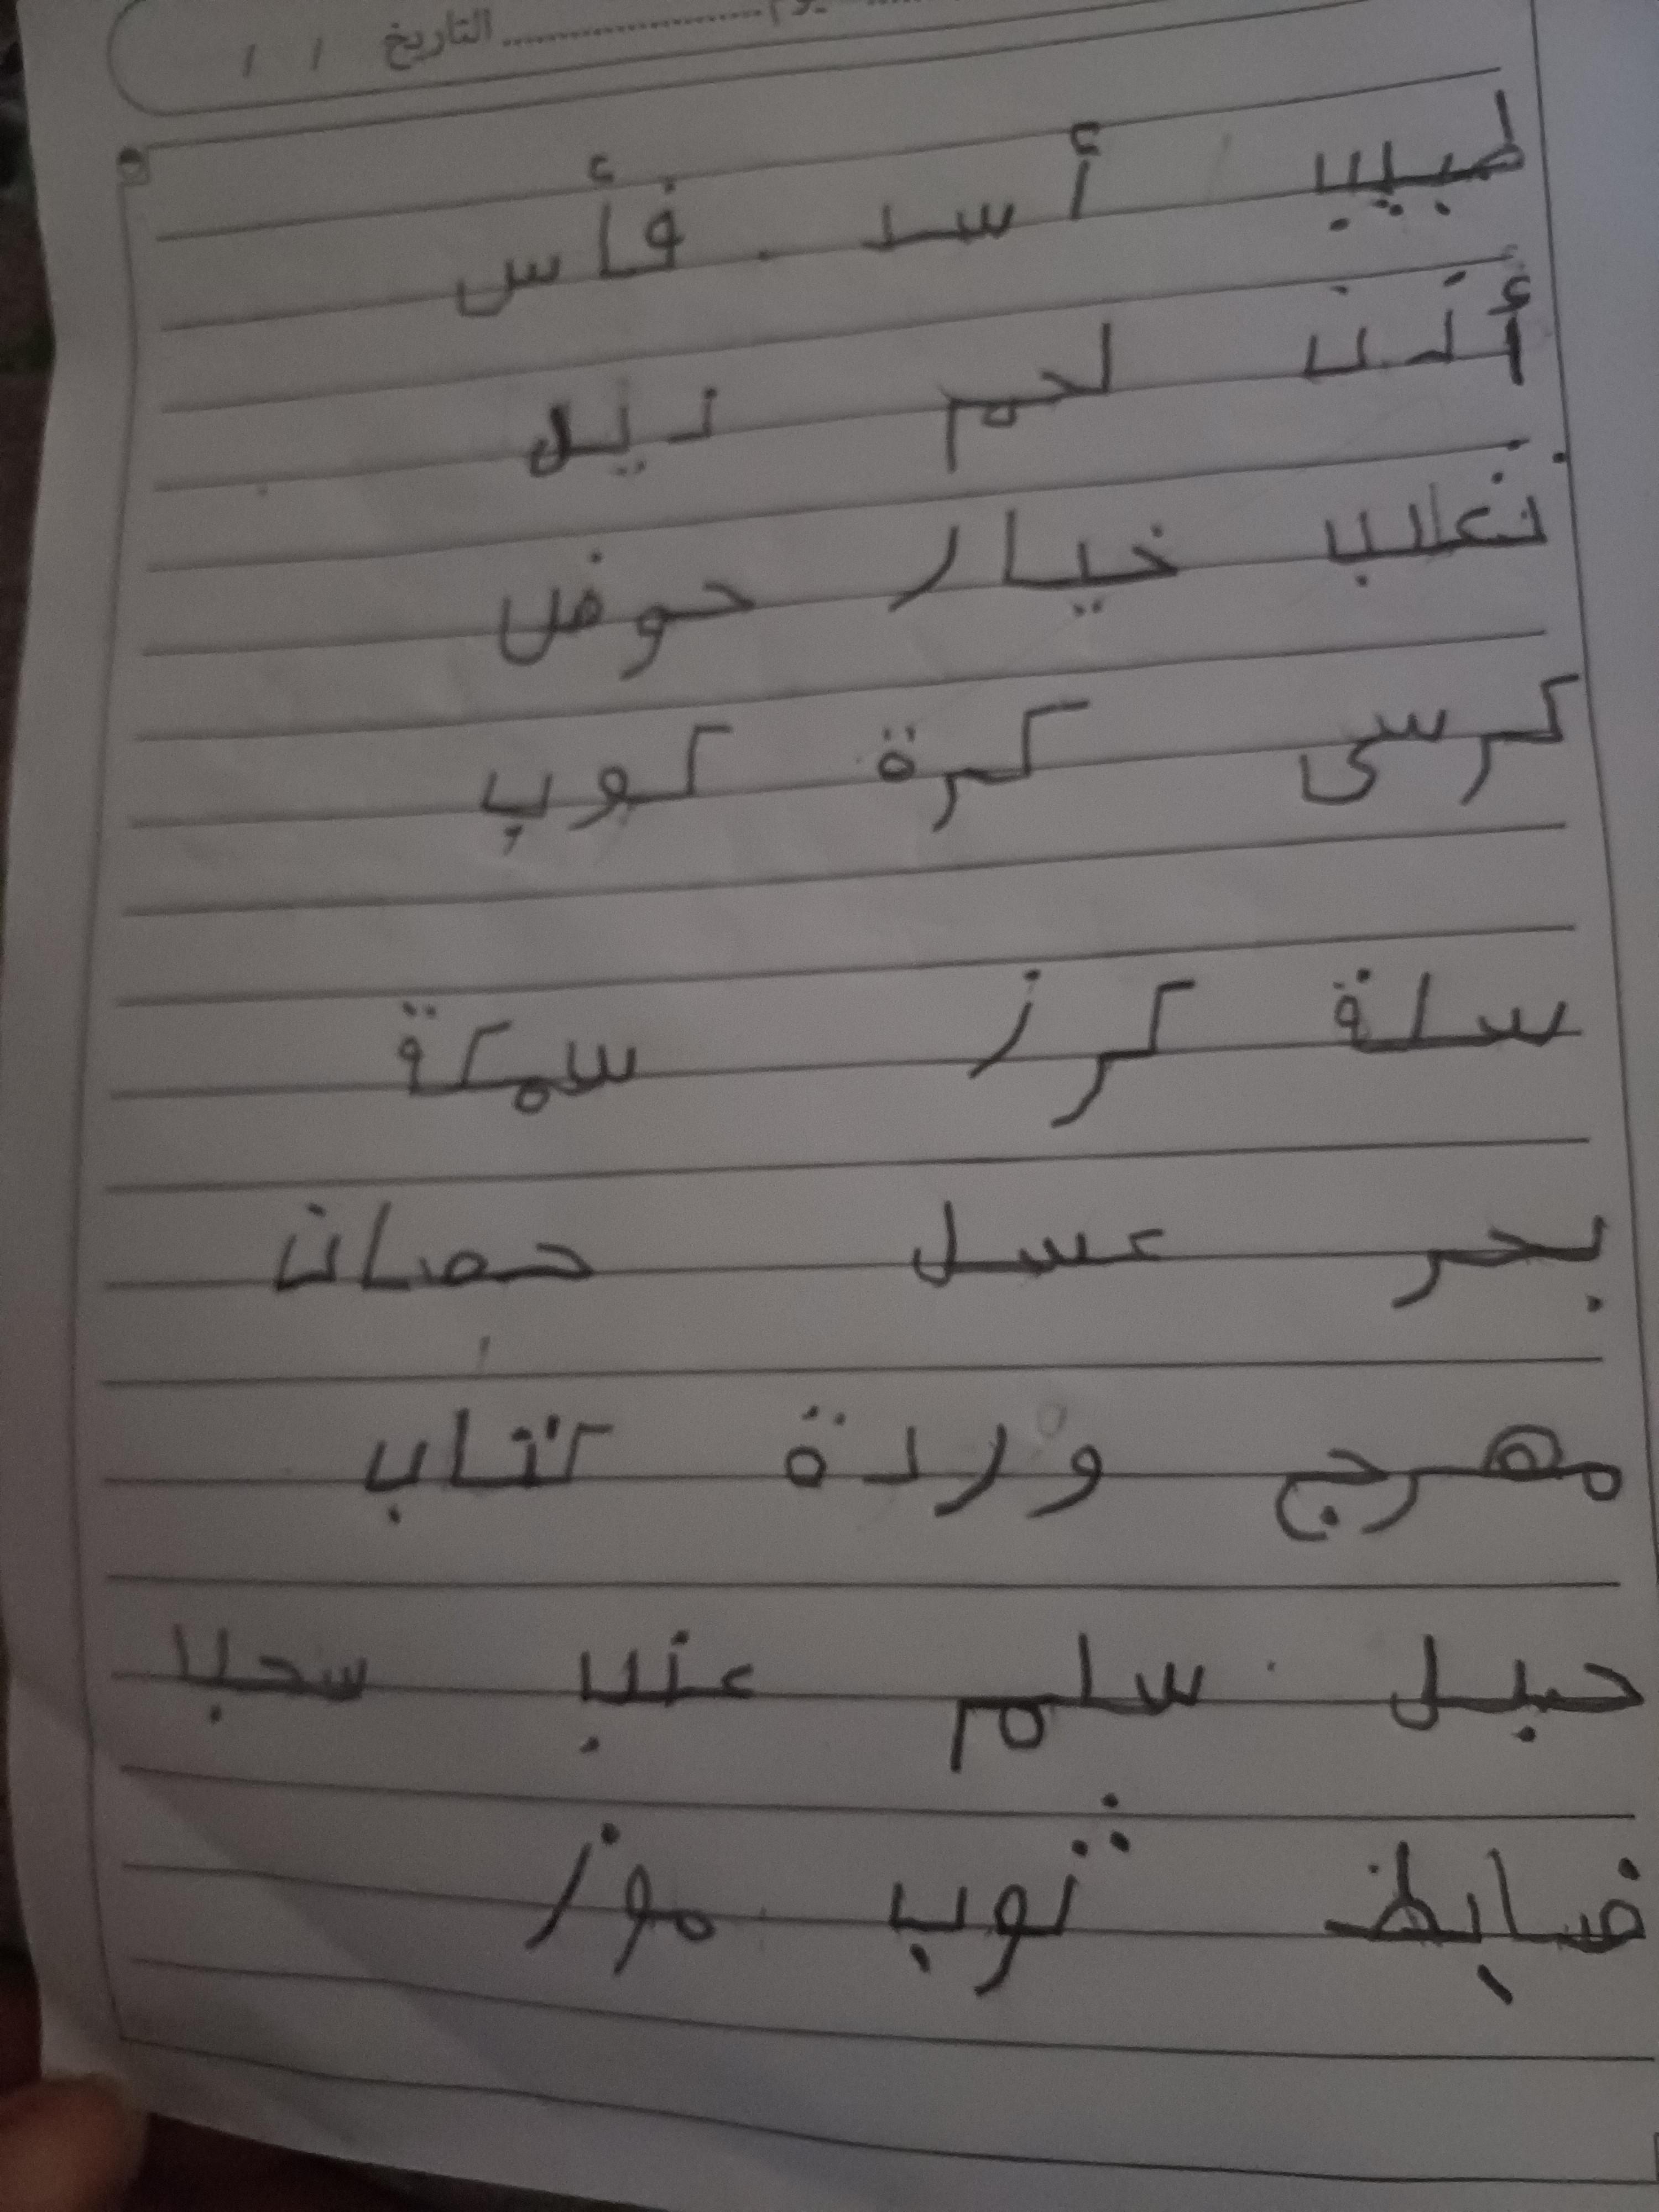 التاريخ / /
طبيب أسد فأس
أذن لحم ذيل
ثعلب خيار حوض
كرسى كرة كوب
سلة كرز سمكة
بحر عسل حصان
مهرج وردة كتاب
حبل سلم عنب
ضابط ثوب موز